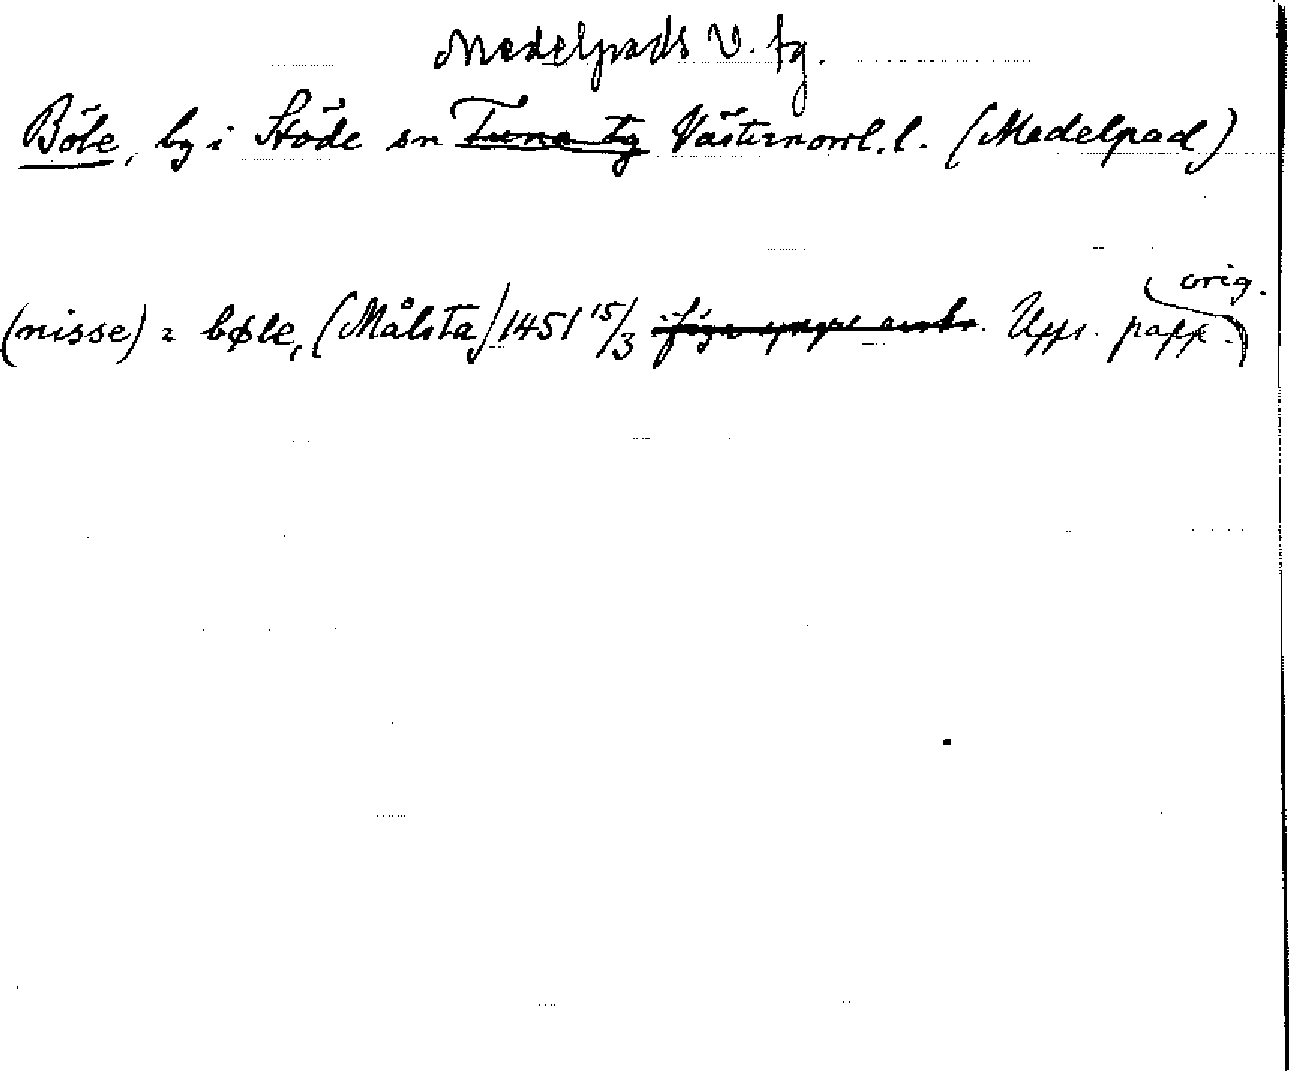 Medelpads V. tg.
Böle, by i Stöde sn Tuna tg Västernorrl. l. (Medelpad)
orig.
(nisse) i bøle, (Målsta) 1451 15/3 Upps. papp.